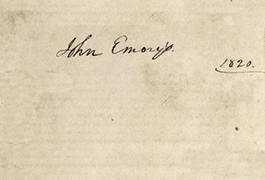 John Emory's.
1820.